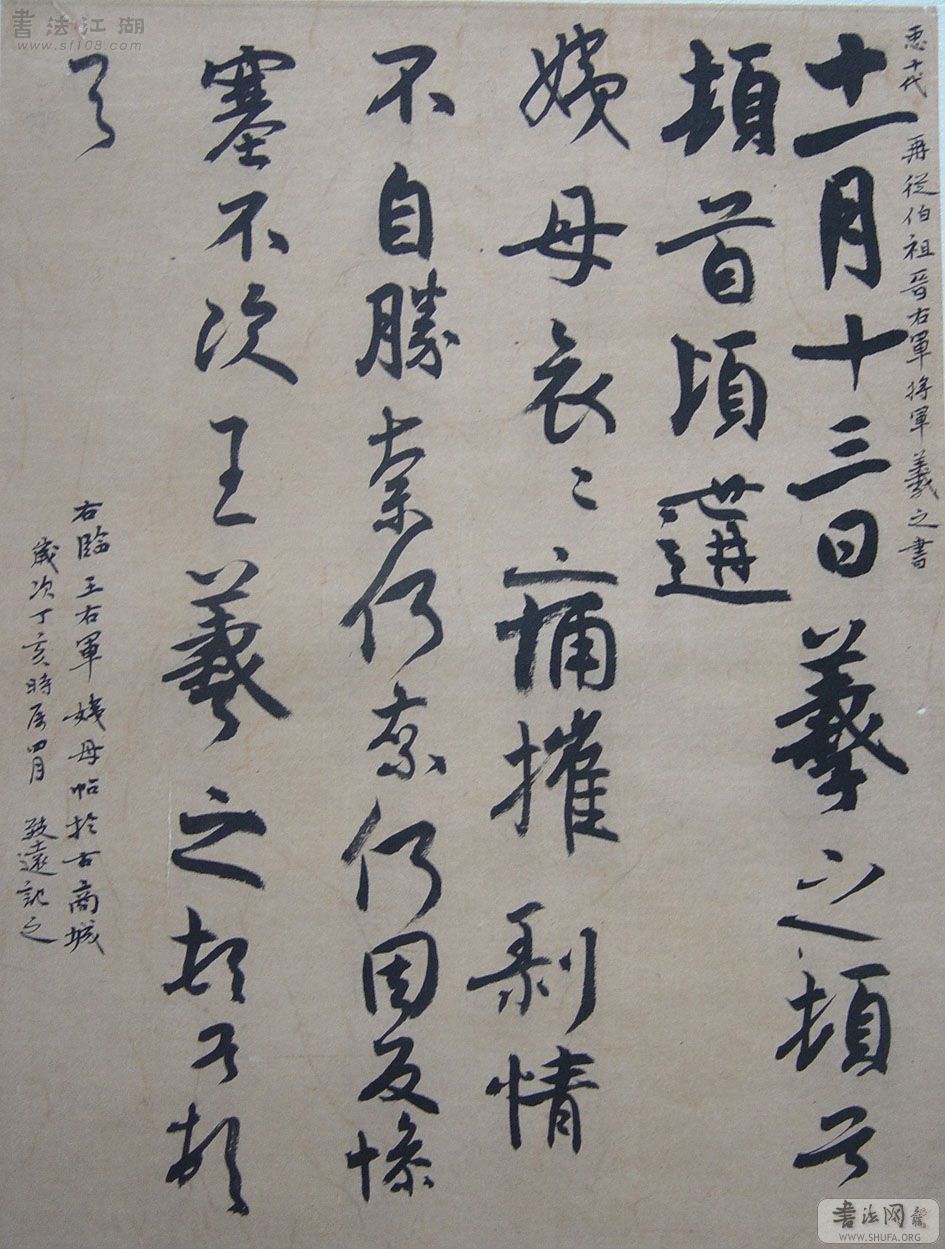 書法江湖
www.sf108.com
臣十代再從伯祖晉右軍將軍羲之書
十一月十三日羲之頓首
頓首頃遘
姨母哀〻痛摧剥情
不自勝奈何奈何因反慘
塞不次王羲之頓首頓
首
右臨王右軍姨母帖於古商城
歲次丁亥時居四月致遠記之
書法网
WWW.SHUFA.ORG